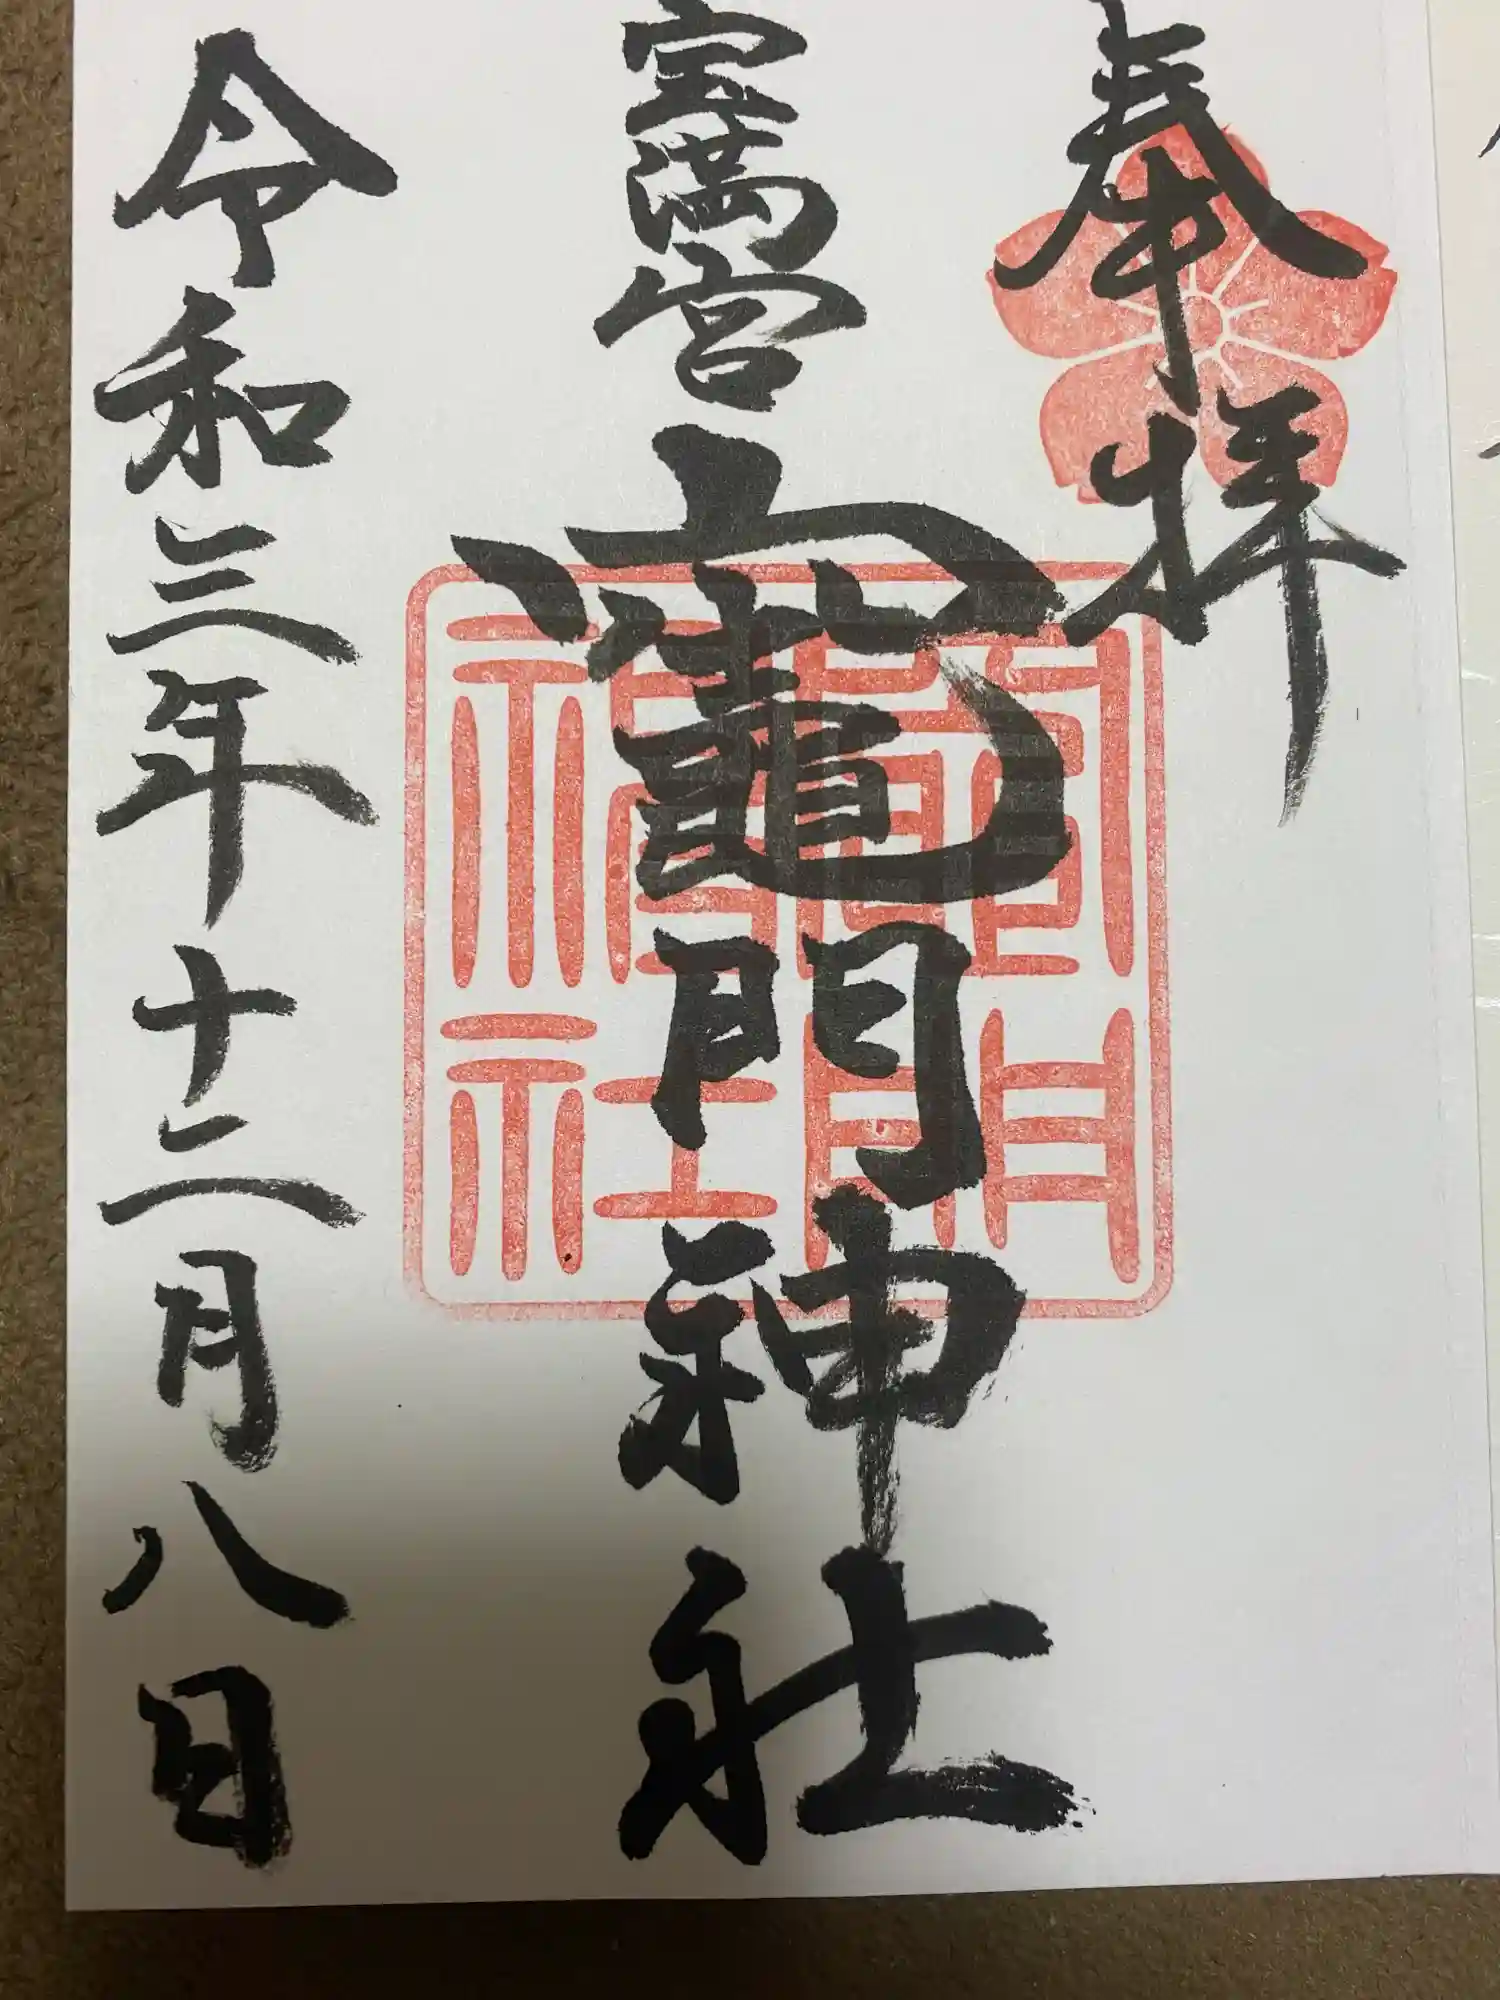 奉拝
宝満宮
竈門神社
令和三年十二月八日
竈門
神社